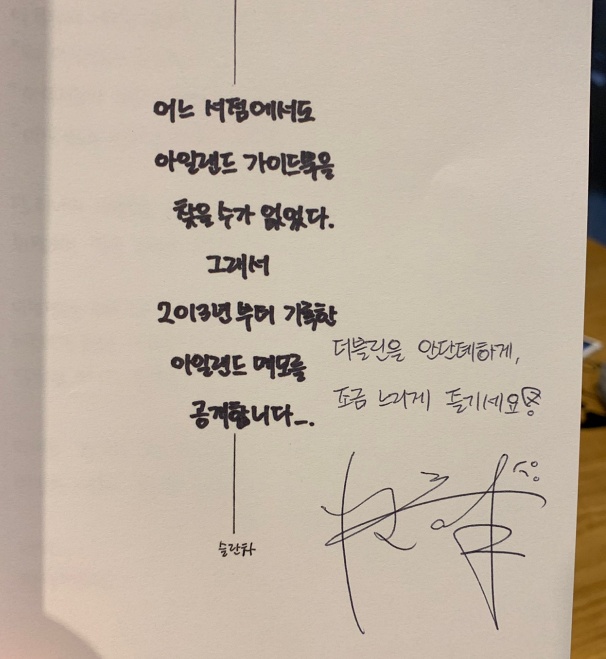 어느 서점에서도
아일랜드 가이드북을
찾을 수가 없었다.
그래서
2013년부터 기록한
아일랜드 메모를
공개합니다_.
더블린을 안단테하게,
조금 느리게 즐기세요
슬란차